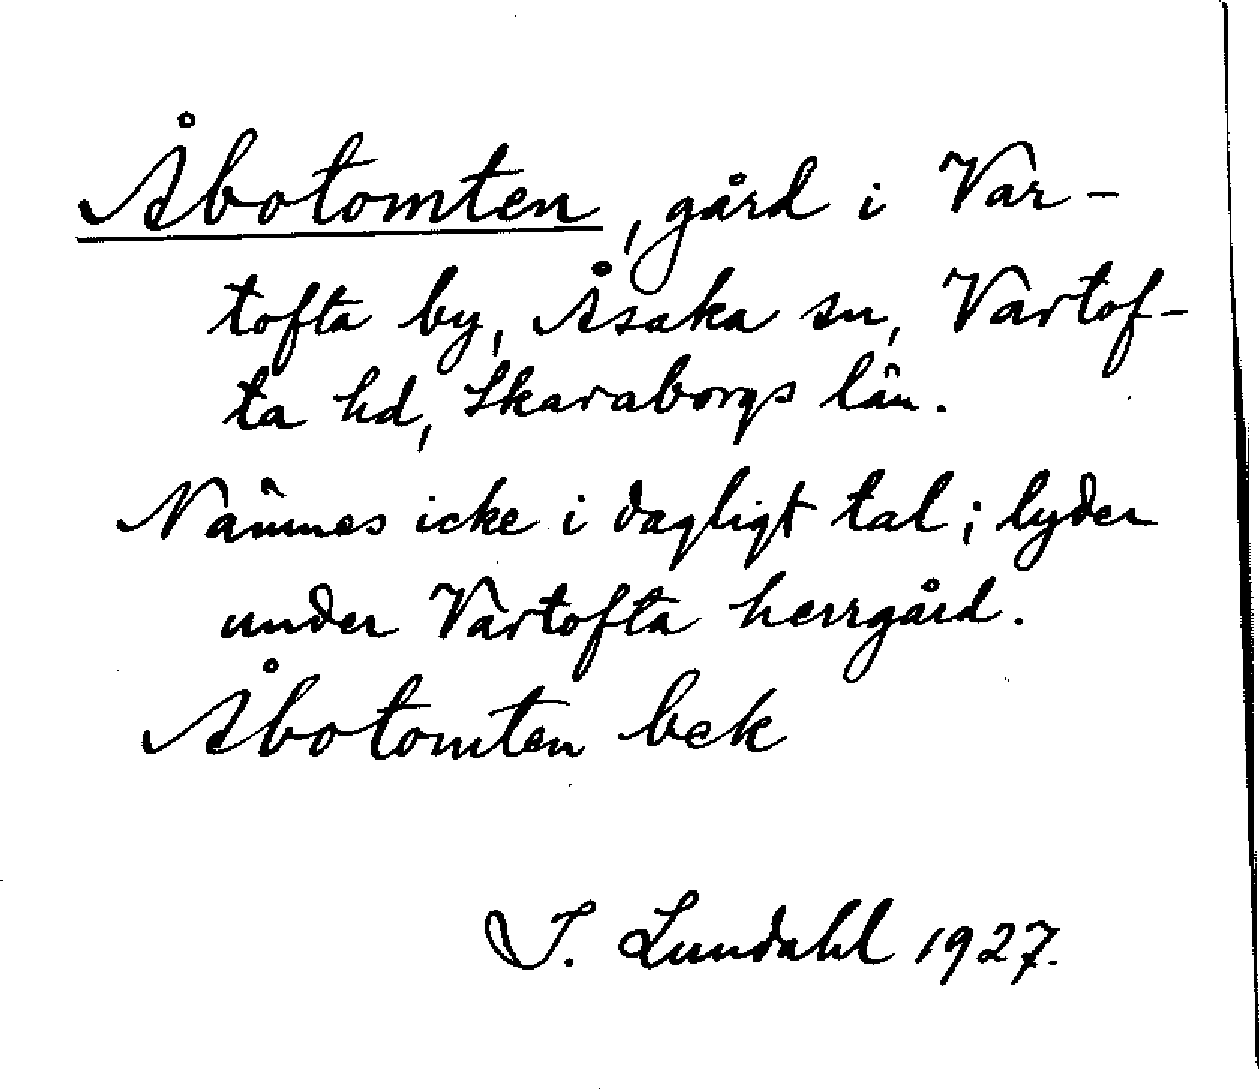 Åbotomten, gård i Var-
tofta by, Åsaka sn, Vartof-
ta hd, Skaraborgs län.
Nämnes icke i dagligt tal; lyder
under Vartofta herrgård.
Åbotomten bek
I. Lundahl 1927.